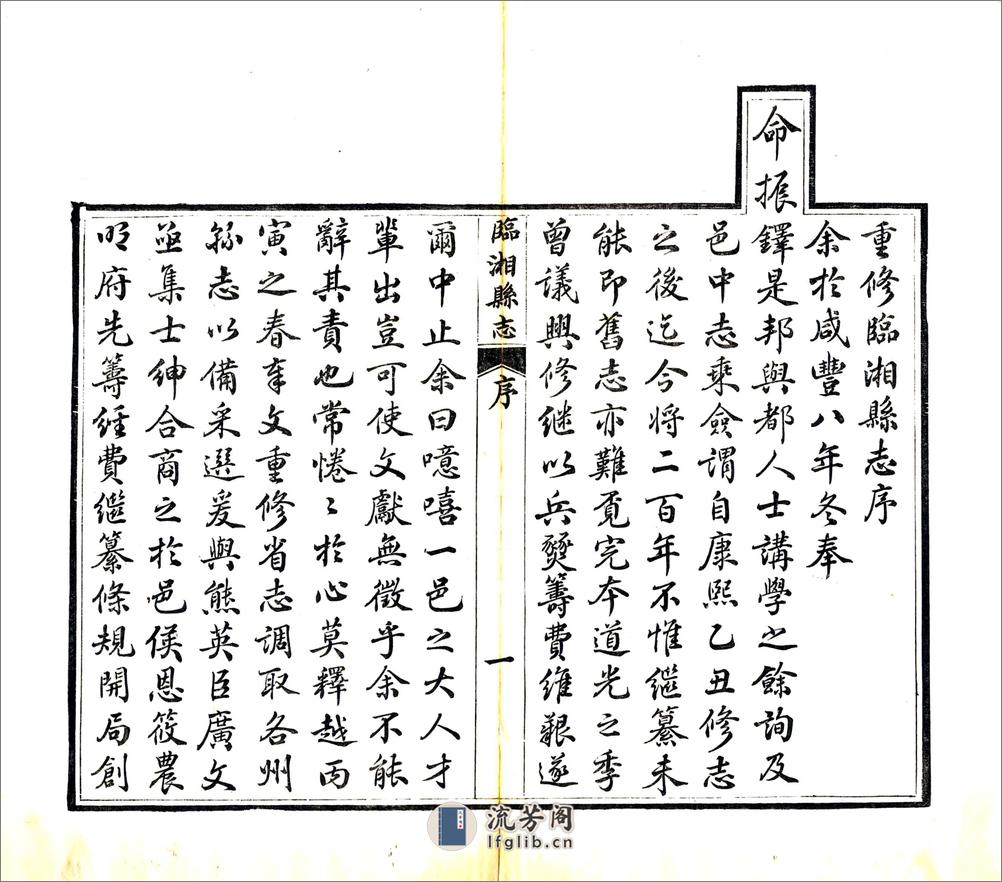 重修臨湘縣志序
余於咸豐八年冬奉
命振鐸是邦與都人士講學之餘詢及
邑中志乘僉謂自康熙乙丑修志
之後迄今將二百年不惟繼纂未
能即舊志亦難覓完本道光之季
曾議興修继以兵燹籌費維艱遂
臨湘縣志 序 一
爾中止余曰噫嘻一邑之大人才
輩出豈可使文獻無徵乎余不能
辭其責也常惓〻於心莫釋越丙
寅之春奉文重修省志調取各州
縣志以備采選爰與熊英臣廣文
亟集士紳合商之於邑侯恩筱農
明府先籌經費继纂條規開局創
流芳阁
lfglib.cn